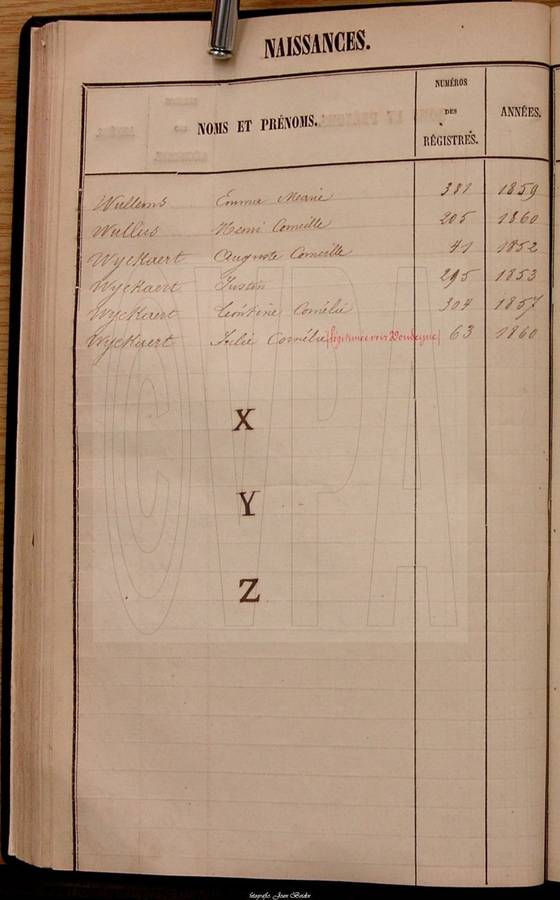 NAISSANCES.
NOMS ET PRÉNOMS.
NUMÉROS
DES
RÉGISTRES.
ANNÉES.
Wullems Emma Marie 381 1859
Wullus Henri Corneille 205 1860
Wyckaert Auguste Corneille 41 1852
Wyckaert Justin 295 1853
Wyckaert Léontine Cornélie 304 1857
Wyckaert Julie Cornélie (légitimée voir 63 1860
X
Y
Z
©VPA
fotografie: Joan Bodor